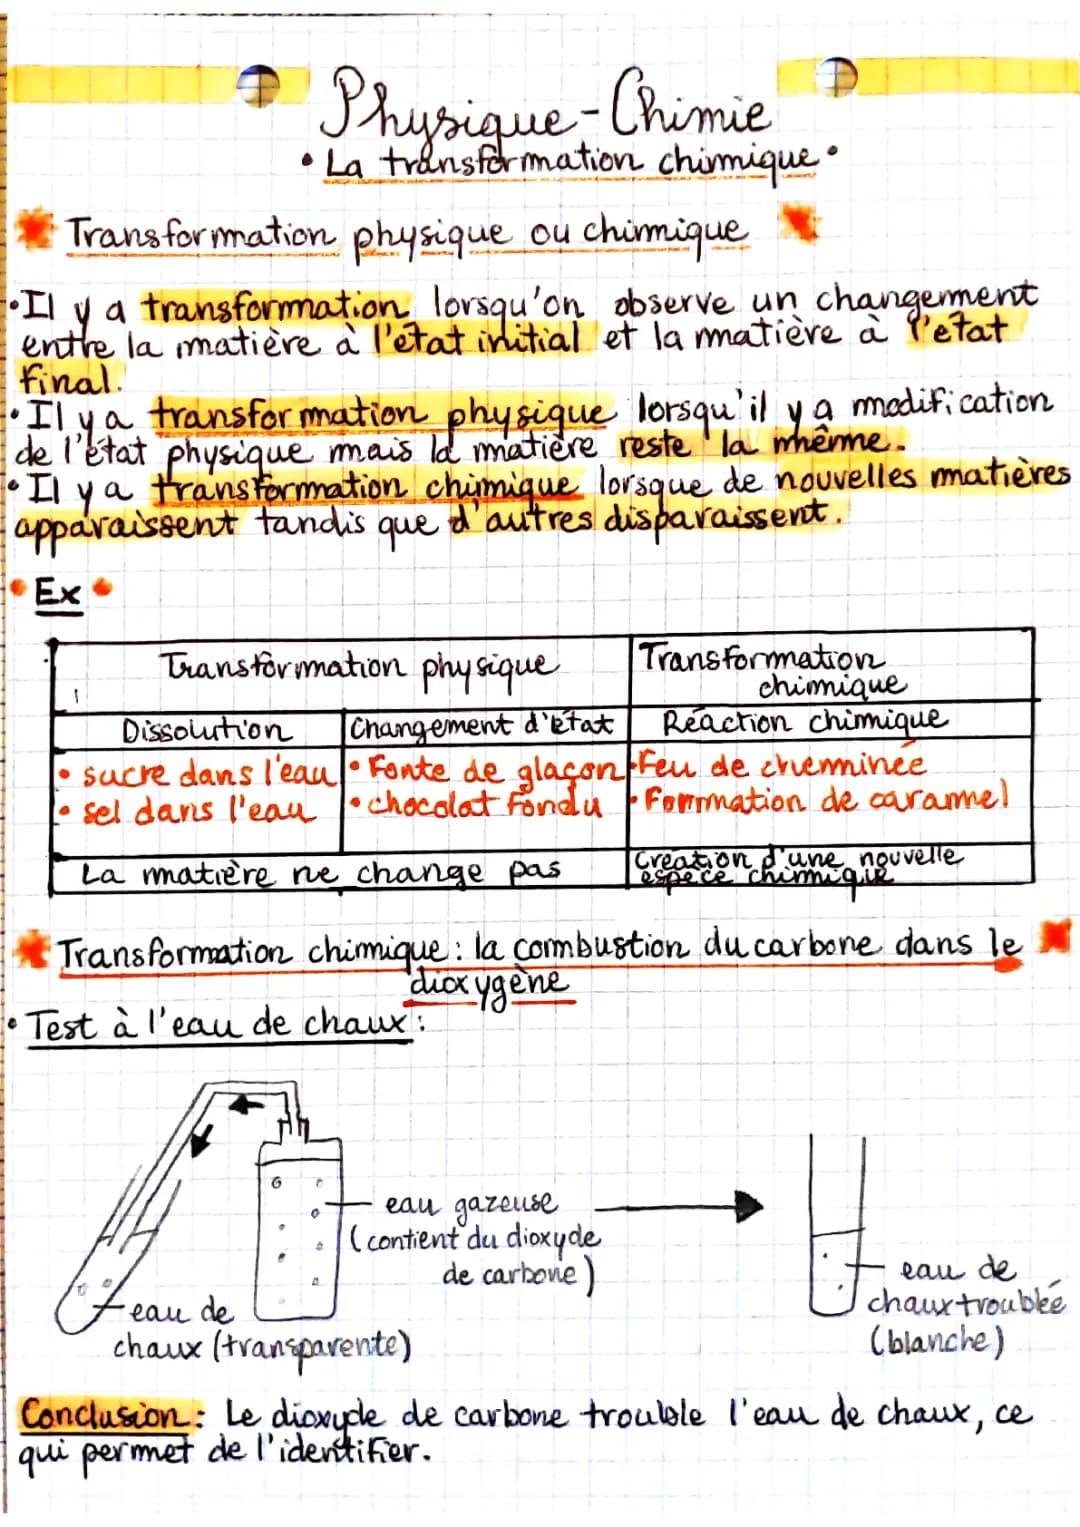 Physique-Chimie
• La transformation chimique •
Transformation physique ou chimique
• Il y a transformation lorsqu'on observe un changement
entre la matière à l'état initial et la matière à l'etat
final.
• Il y a transformation physique lorsqu'il y a modification
de l'état physique mais la matière reste la mhême.
• Il y a transformation chimique lorsque de nouvelles matières
apparaissent tandis que d'autres disparaissent.
• Ex •
Transformation physique
Transformation
chimique
Dissolution
Changement d'état
Réaction chimique
• sucre dans l'eau
• sel dans l'eau
• Fonte de glaçon
• chocolat fondu
• Feu de cheminée
• Formation de caramel
La matière ne change pas
Création d'une nouvelle
espèce chimique
Transformation chimique : la combustion du carbone dans le
dioxygène
• Test à l'eau de chaux :
eau gazeuse
(contient du dioxyde
de carbone)
eau de
chaux (transparente)
eau de
chaux troublée
(blanche)
Conclusion : Le dioxyde de carbone trouble l'eau de chaux, ce
qui permet de l'identifier.